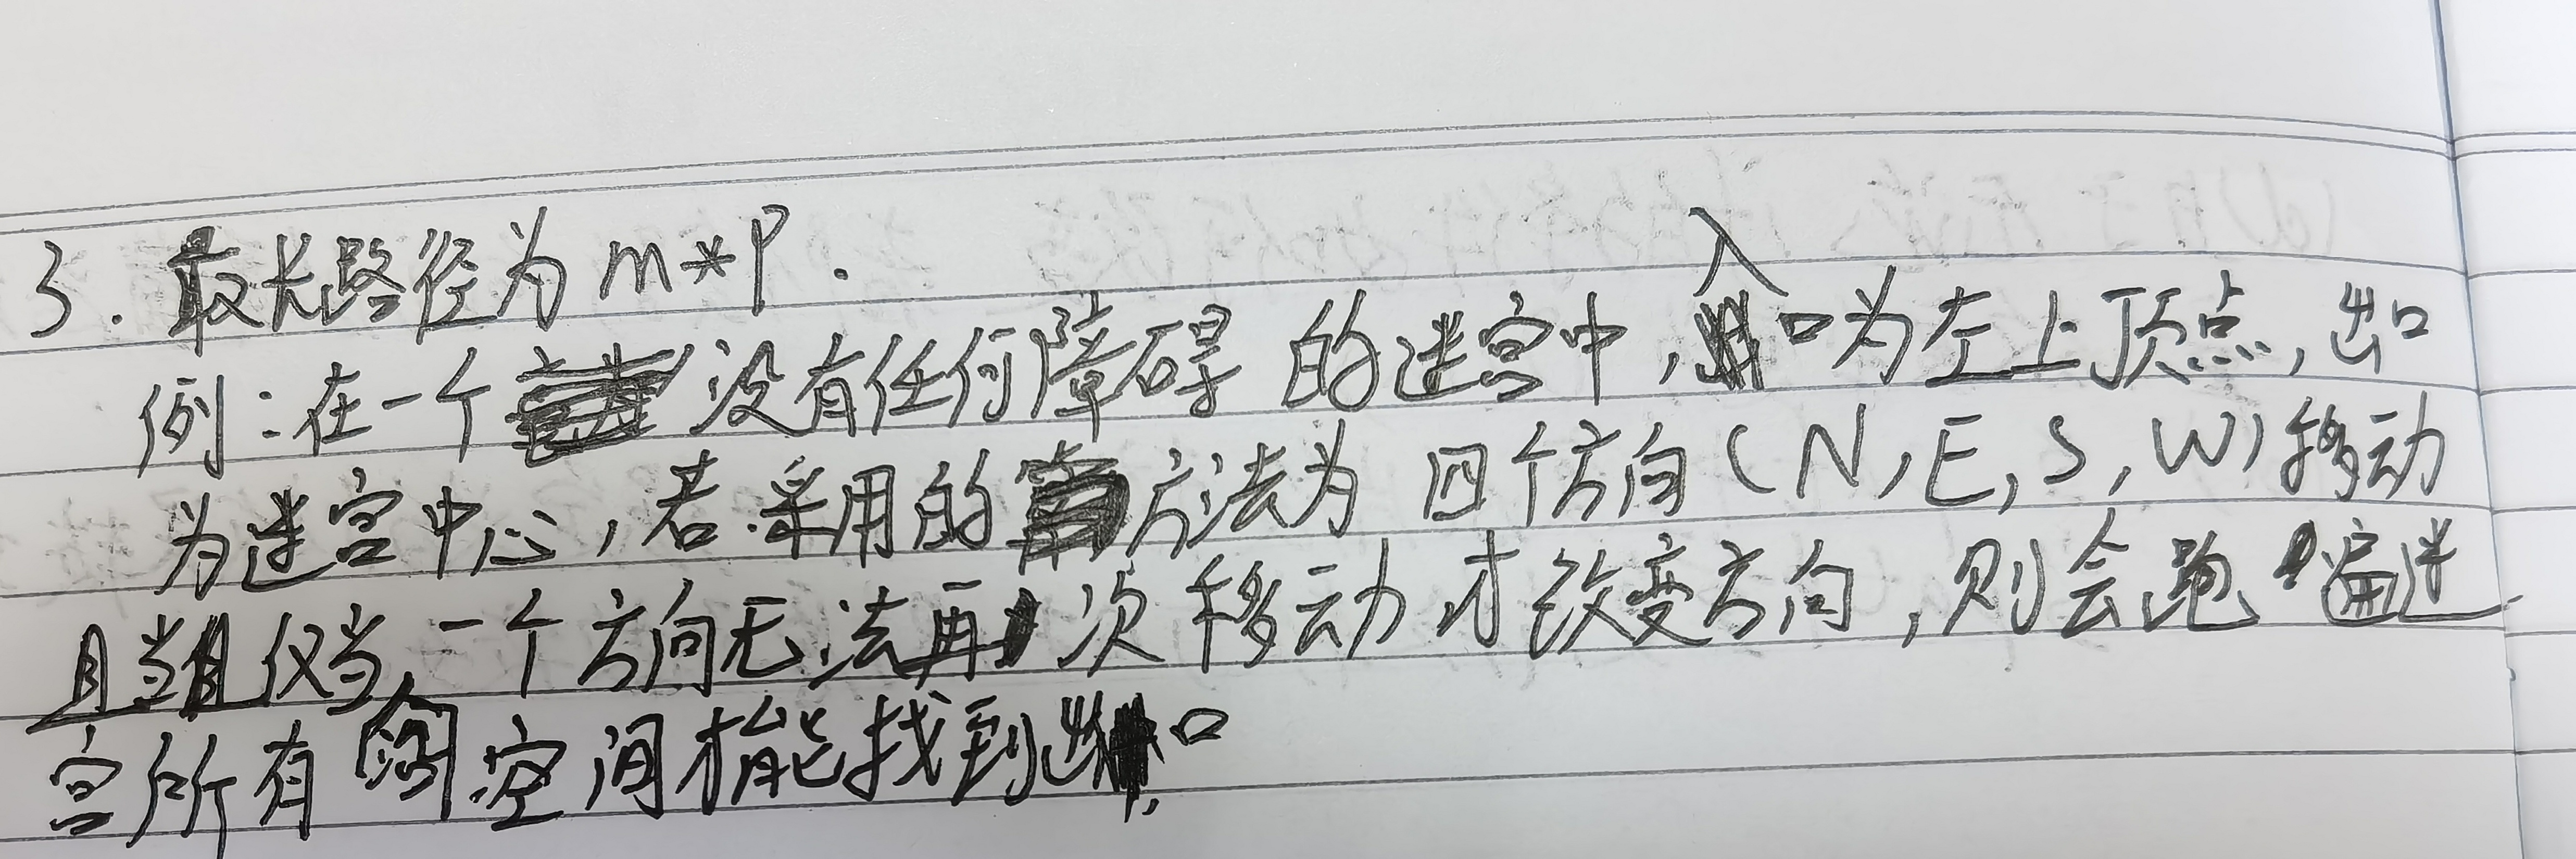 3. 最长路径为 m*P.
例:在一个没有任何障碍的迷宫中,入口为左上顶点,出口
为迷宫中心,若采用的方法为 四个方向(N,E,S,W)移动
且当且仅当一个方向无法再次移动才改变方向,则会跑遍迷
宫所有的空间才能找到出口